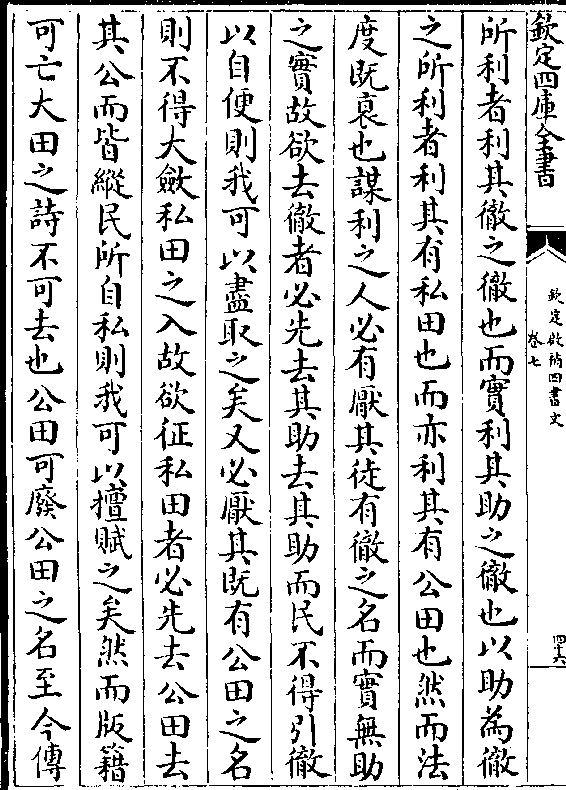 欽定四庫全書
欽定啟禎四書文
卷七
四十六
所利者利其徹之徹也而實利其助之徹也以助為徹
之所利者利其有私田也而亦利其有公田也然而法
度既衰也謀利之人必有厭其徒有徹之名而實無助
之實故欲去徹者必先去其助去其助而民不得引徹
以自便則我可以盡取之矣又必厭其既有公田之名
則不得大斂私田之入故欲征私田者必先去公田去
其公而皆縱民所自私則我可以擅賦之矣然而版籍
可亡大田之詩不可去也公田可廢公田之名至今傳